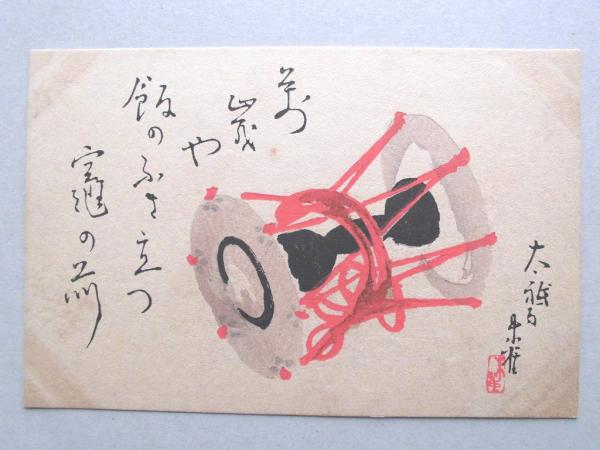 萬
歳
や
飯のふき立つ
竈の前
太祇句